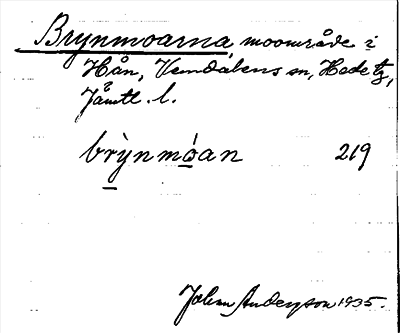 Brynmoarna, moområde i
Hån, Vemdalens sn, Hede tg,
Jämtl. l.
brỳnmóan 219
Johan Anderson 1935.